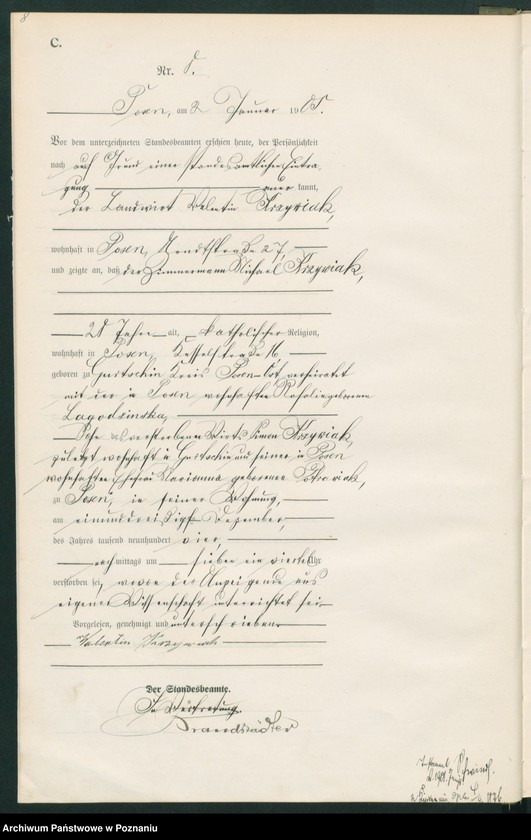 8
C.
Nr. 8.
Posen, am 2 Januar 1905.
Vor dem unterzeichneten Standesbeamten erschien heute, der Persönlichkeit
nach auf Grund einer standesamtlichen Eintra-
gung anerkannt,
der Landwirt Valentin Krzyviak,
wohnhaft in Posen,
und zeigte an, daß der Zimmermann Michael Krzyviak,
28 Jahre alt, katholischer Religion,
wohnhaft in Posen, 16,
geboren zu Gurtschin Kreis Posen Ost verheiratet
mit der in Posen wohnhaften geborenen
Lagodzinska,
Sohn des verstorbenen Wirts Simon Krzyviak,
zuletzt wohnhaft in Gurtschin und seiner in Posen
wohnhaften Ehefrau Marianna geborenen
zu Posen, in seiner Wohnung,
am einunddreißigsten Dezember,
des Jahres tausend neunhundert vier,
nachmittags um sieben ein viertel Uhr
verstorben sei, wovon der Anzeigende aus
eigener Wissenschaft unterrichtet sei.
Vorgelesen, genehmigt und unterschrieben
Valentin
Der Standesbeamte.
In Vertretung.
Brandstädter
Archiwum Państwowe w Poznaniu